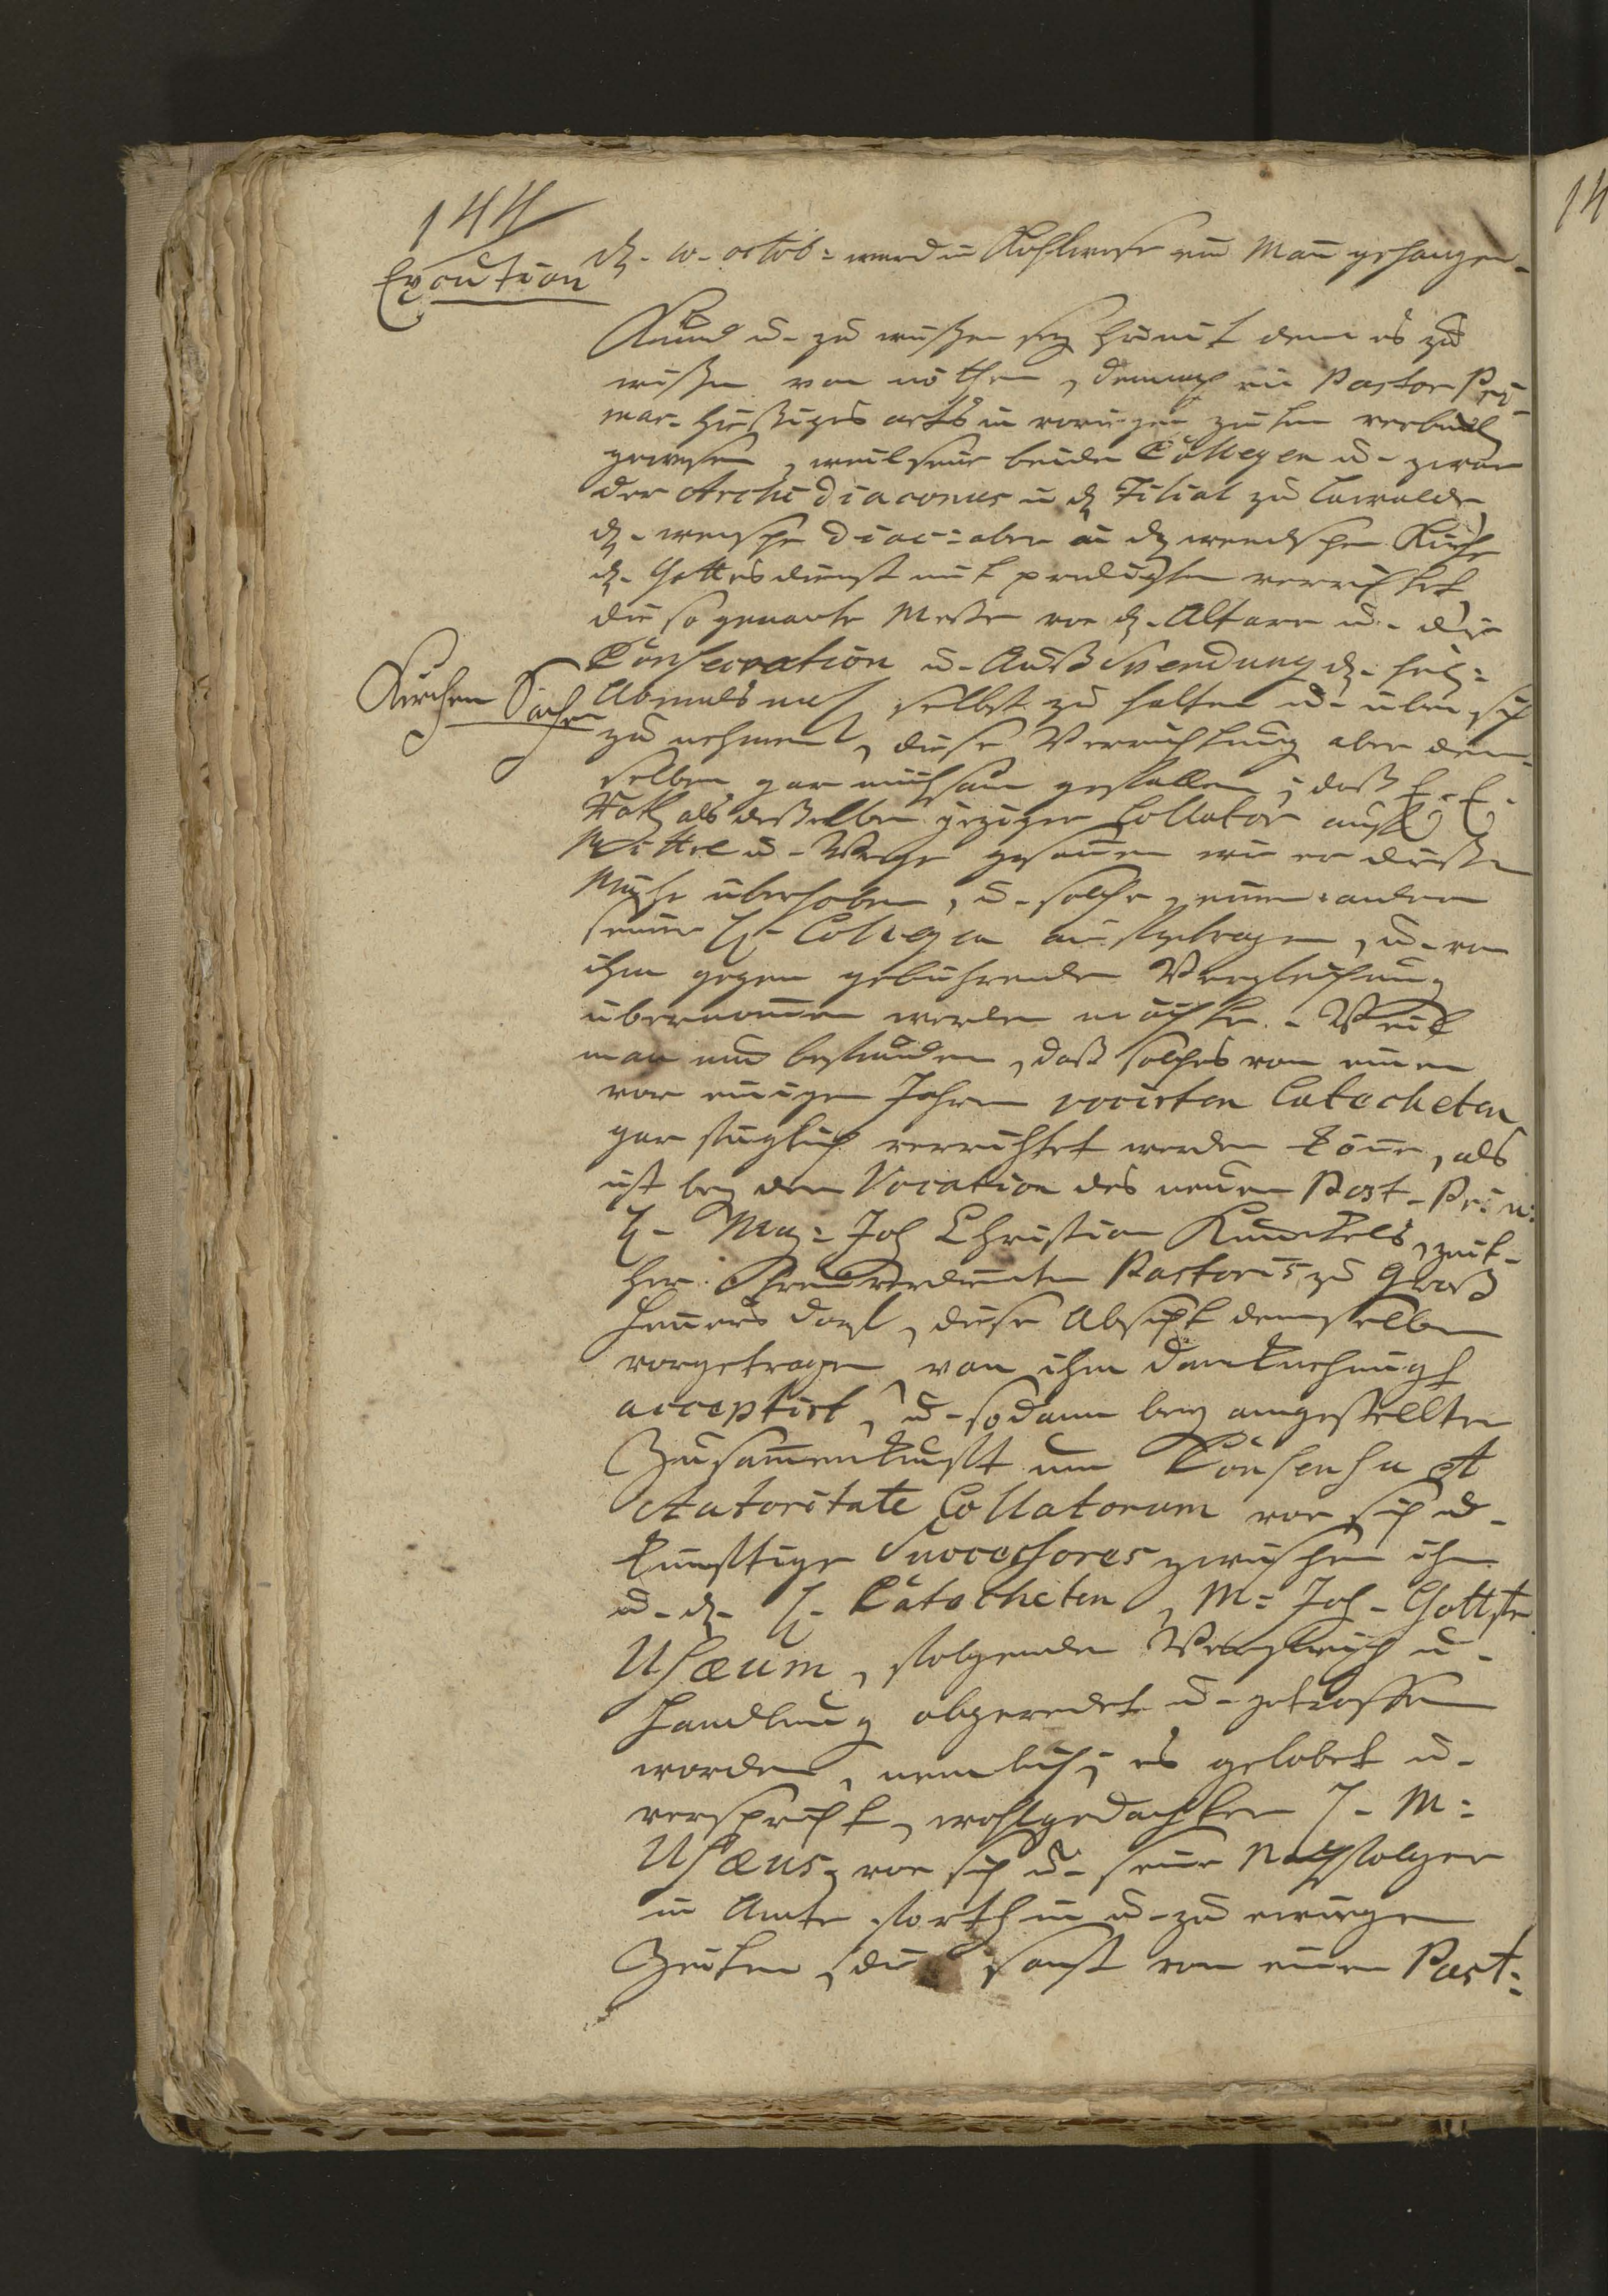 144
Execution
d. 10. octob: ward in Kohlwese ein Man gehangen.
Kund u. zu wißen sey hiemit dem es zu
wißen von nöthen, demnach ein Pastor Pri-
mar. hießiges orts in vorigen zeiten verbunden
gewesen, weil seine beide Collegen u. zwar
der Archidiaconus in d. Filial zu Lawalde,
d. wendsche Diac: aber in d. wendschen Kirche
d. Gottesdienst mit predigten verrichtet
die so genante Messe vor d. Altare u. die
Consecration u. Außspendung d. heil:
Kirchen Sachen
Abendmls selbst zu halten u. über sich
zu nehmen, diese Verrichtung aber dem-
selben gar mühsam gefallen; daß E. E.
Rath als deßelben jeziger Collator auff
Mittel u. Wege gesonnen wie er dießer
Mühe überhoben, u. solche einem andern
seiner H. Collegen aufgetragen, u. von
ihm gegen gebührende Vergleichung
übernommen werden möchte. Weil
man nun befunden, daß solches von einem
vor einigen Jahren vocirten Catecheten
gar füglich verrichtet werden könne, als
ist bey der Vocation des neuen Past. Prim:
H. Mag: Joh Christian Kunckels, zeit-
her Pastoris zu Groß
Henners dorf, diese Absicht demselben
vorgetragen von ihm
acceptirt, u. sodann bey angestellter
Zusammenkunfft um Consensu et
Autoritate Collatorum vor sich u.
künfftige Successores zwischen ihm
u. d. H. Catecheten, M: Joh. Gottfr
Ufæum, folgender Vergleich u.
Handlung abgeredet u. getroffen
worden, nemlich; es gelobet u.
verspricht, wohlgedachter H. M:
Ufæus, vor sich u. seine Nachfolger
in Amte forthin u. zu ewigen
Zeiten, die sonst von einem Past:
14